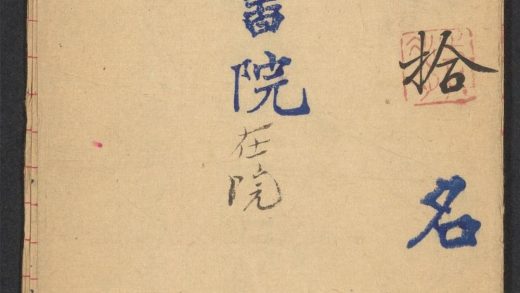 拾名
院在院